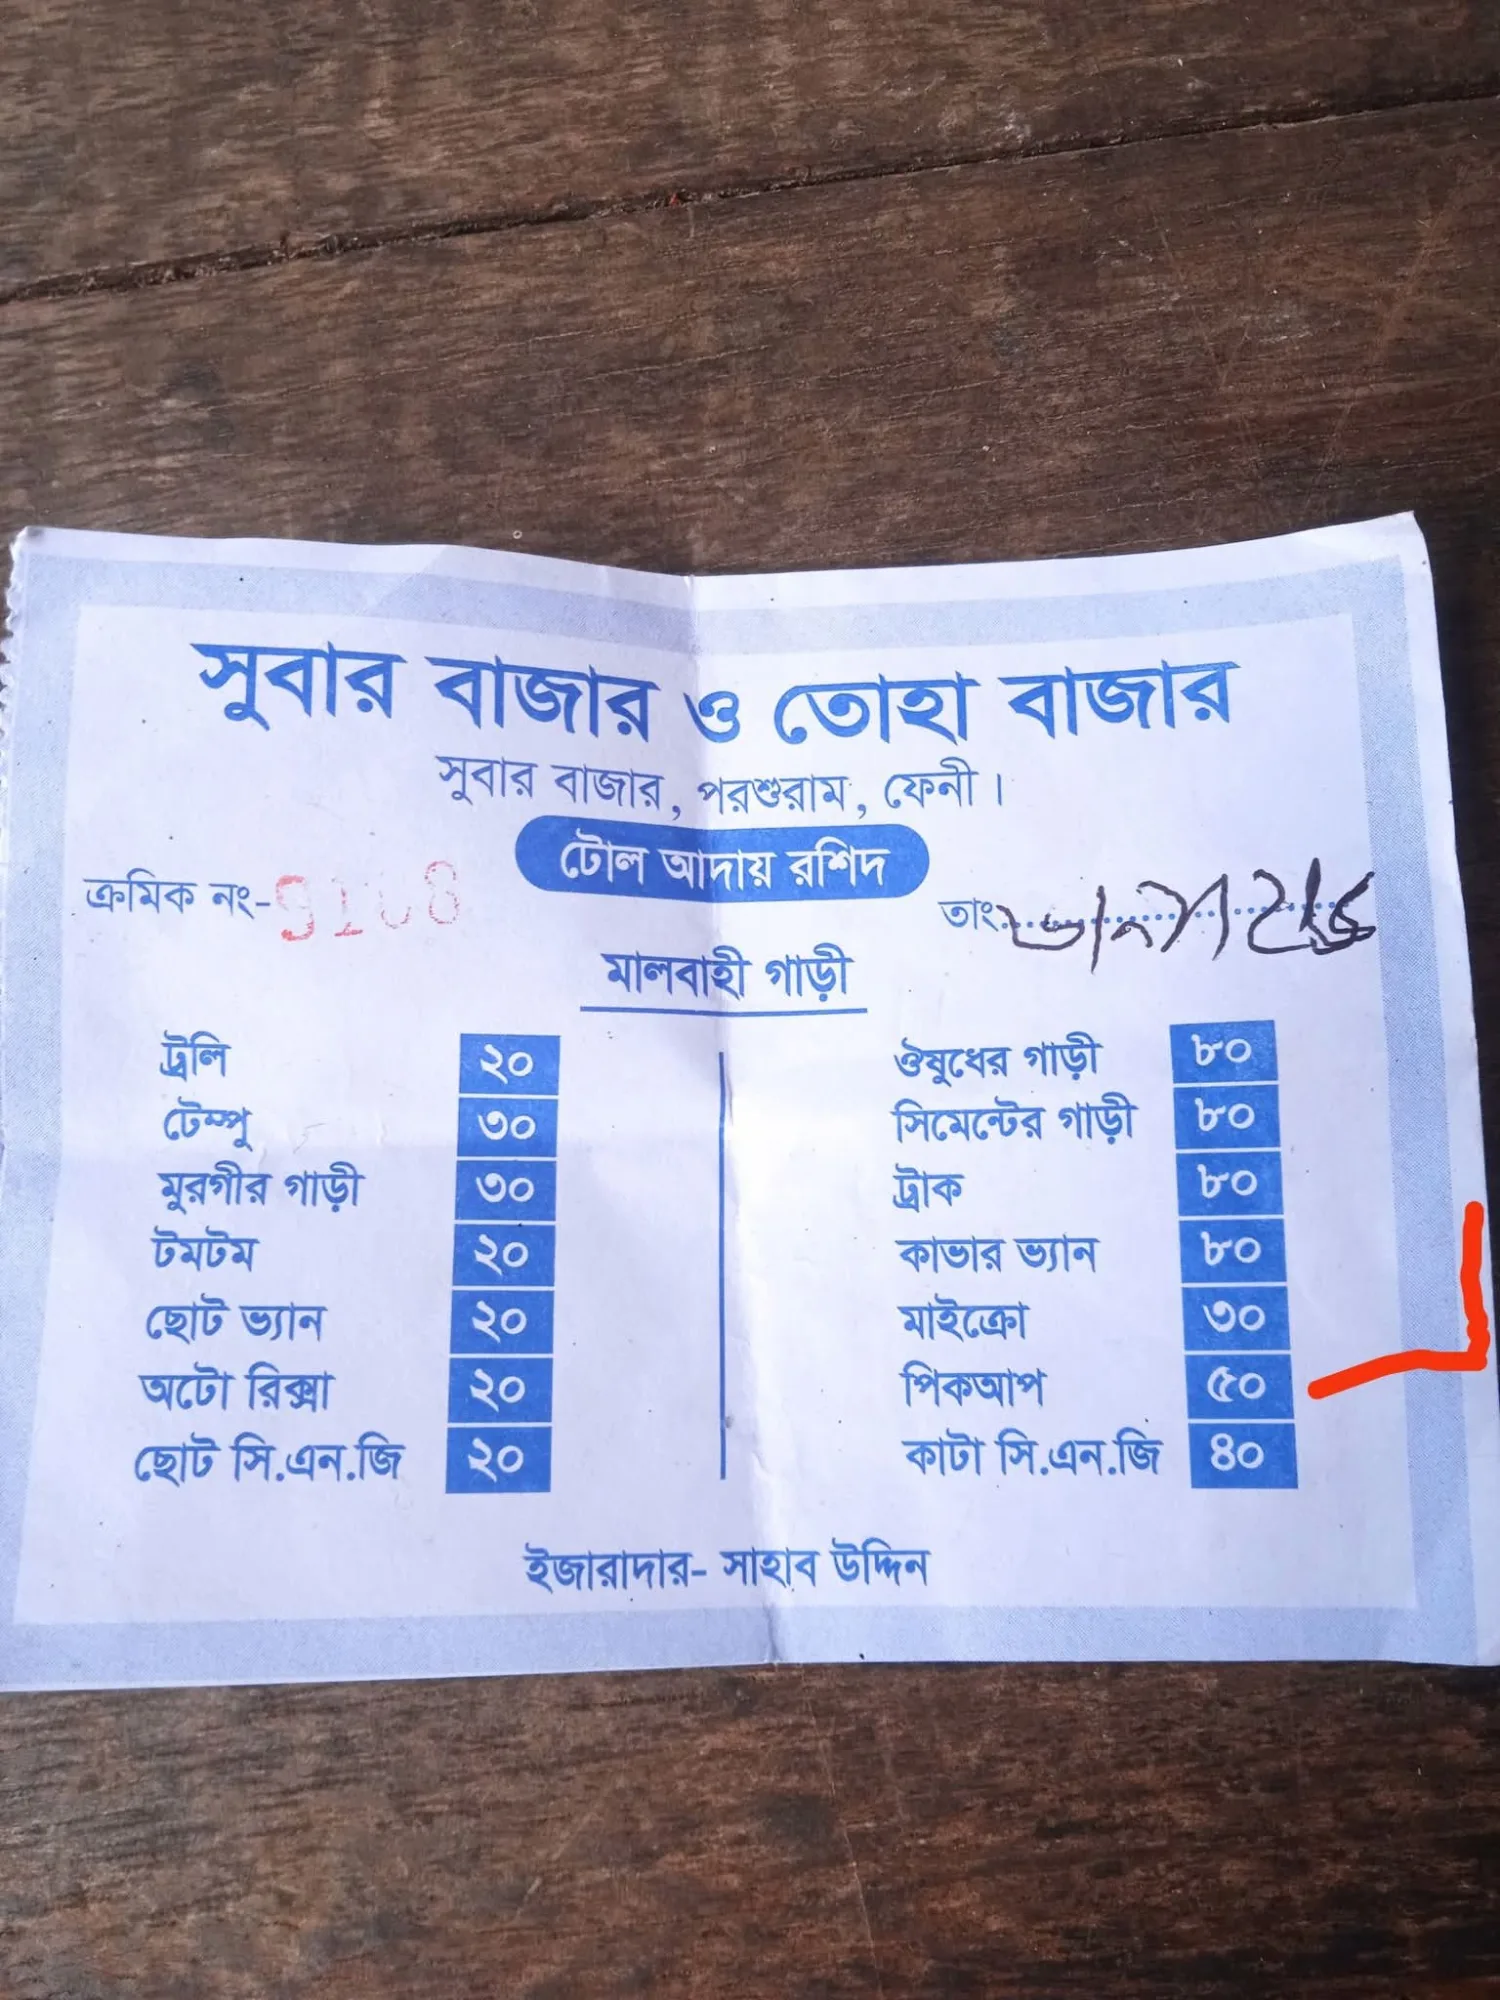 সুবার বাজার ও তোহা বাজার
সুবার বাজার, পরশুরাম, ফেনী।
টোল আদায় রশিদ
ক্রমিক নং-
তাং
মালবাহী গাড়ী
ট্রলি ২০
টেম্পু ৩০
মুরগীর গাড়ী ৩০
টমটম ২০
ছোট ভ্যান ২০
অটো রিক্সা ২০
ছোট সি.এন.জি ২০
ঔষুধের গাড়ী ৮০
সিমেন্টের গাড়ী ৮০
ট্রাক ৮০
কাভার ভ্যান ৮০
মাইক্রো ৩০
পিকআপ ৫০
কাটা সি.এন.জি ৪০
ইজারাদার- সাহাব উদ্দিন